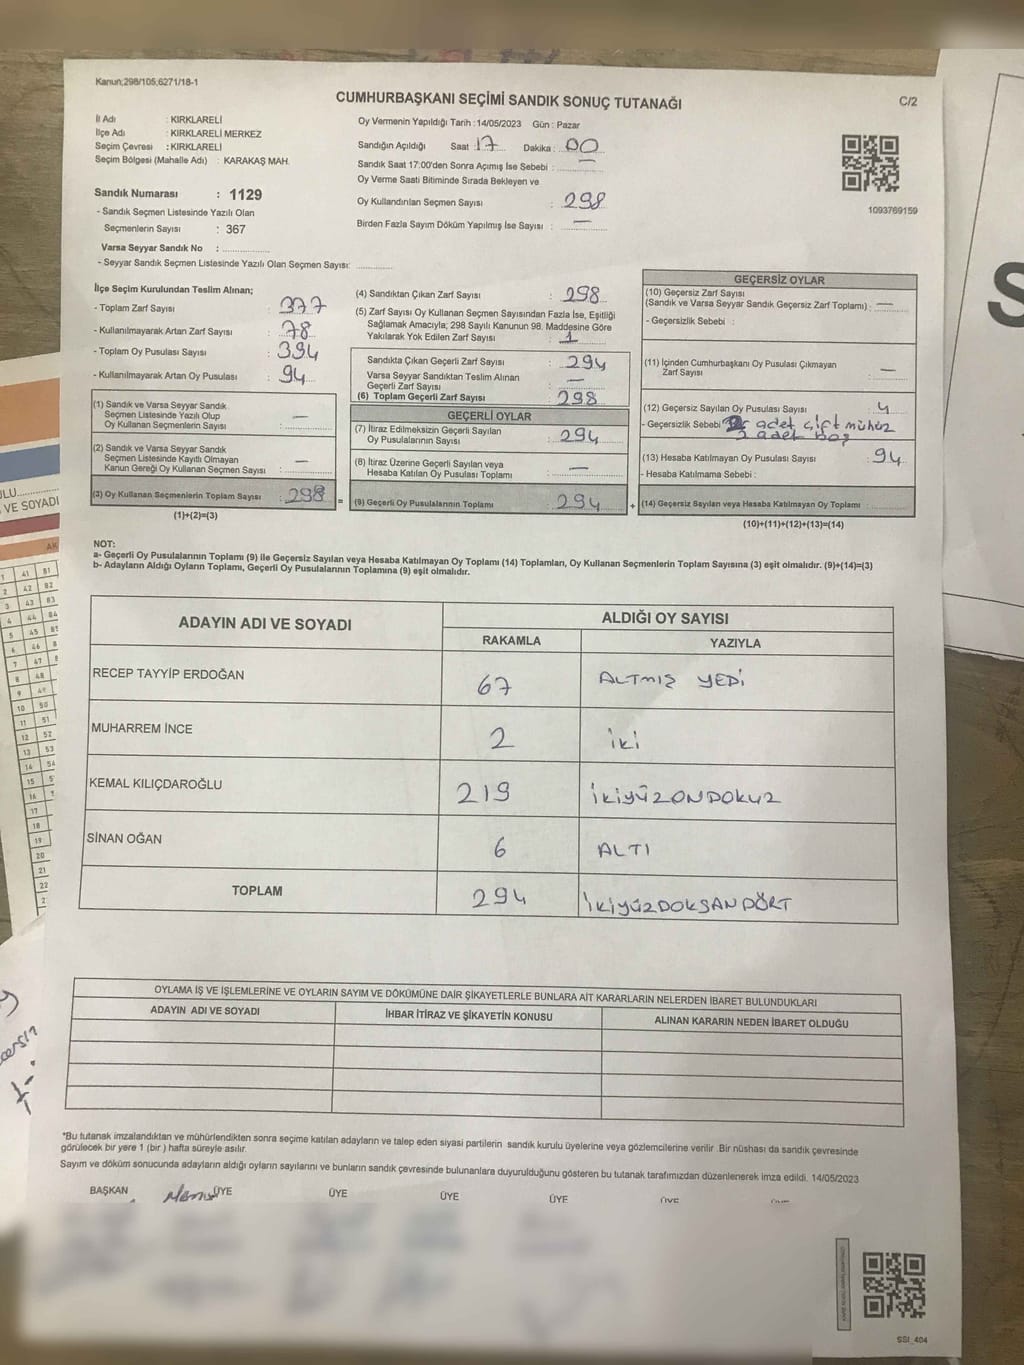 Kanun;298/105;6271/18-1
CUMHURBAŞKANI SEÇİMİ SANDIK SONUÇ TUTANAĞI
C/2
İl Adı : KIRKLARELİ
İlçe Adı : KIRKLARELİ MERKEZ
Seçim Çevresi : KIRKLARELİ
Seçim Bölgesi (Mahalle Adı) : KARAKAŞ MAH.
Sandık Numarası : 1129
- Sandık Seçmen Listesinde Yazılı Olan
Seçmenlerin Sayısı : 367
Varsa Seyyar Sandık No :
- Seyyar Sandık Seçmen Listesinde Yazılı Olan Seçmen Sayısı:
Oy Vermenin Yapıldığı Tarih : 14/05/2023 Gün : Pazar
Sandığın Açıldığı Saat : 17 Dakika : 00
Sandık Saat 17:00'den Sonra Açımış İse Sebebi : —
Oy Verme Saati Bitiminde Sırada Bekleyen ve
Oy Kullandırılan Seçmen Sayısı : 298
Birden Fazla Sayım Döküm Yapılmış İse Sayısı : —
1093769159
İlçe Seçim Kurulundan Teslim Alınan;
- Toplam Zarf Sayısı : 377
- Kullanılmayarak Artan Zarf Sayısı : 78
- Toplam Oy Pusulası Sayısı : 394
- Kullanılmayarak Artan Oy Pusulası : 94
(1) Sandık ve Varsa Seyyar Sandık
Seçmen Listesinde Yazılı Olup
Oy Kullanan Seçmenlerin Sayısı : —
(2) Sandık ve Varsa Seyyar Sandık
Seçmen Listesinde Kayıtlı Olmayan
Kanun Gereği Oy Kullanan Seçmen Sayısı : —
(3) Oy Kullanan Seçmenlerin Toplam Sayısı : 298
(1)+(2)=(3)
(4) Sandıktan Çıkan Zarf Sayısı : 298
(5) Zarf Sayısı Oy Kullanan Seçmen Sayısından Fazla İse, Eşitliği
Sağlamak Amacıyla; 298 Sayılı Kanunun 98. Maddesine Göre
Yakılarak Yok Edilen Zarf Sayısı : 1
Sandıkta Çıkan Geçerli Zarf Sayısı : 294
Varsa Seyyar Sandıktan Teslim Alınan
Geçerli Zarf Sayısı : —
(6) Toplam Geçerli Zarf Sayısı : 298
GEÇERLİ OYLAR
(7) İtiraz Edilmeksizin Geçerli Sayılan
Oy Pusulalarının Sayısı : 294
(8) İtiraz Üzerine Geçerli Sayılan veya
Hesaba Katılan Oy Pusulaları Toplamı : —
= (9) Geçerli Oy Pusulalarının Toplamı : 294
GEÇERSİZ OYLAR
(10) Geçersiz Zarf Sayısı
(Sandık ve Varsa Seyyar Sandık Geçersiz Zarf Toplamı) : —
- Geçersizlik Sebebi :
(11) İçinden Cumhurbaşkanı Oy Pusulası Çıkmayan
Zarf Sayısı : —
(12) Geçersiz Sayılan Oy Pusulası Sayısı : 4
- Geçersizlik Sebebi adet çift mühür
2 adet boş
(13) Hesaba Katılmayan Oy Pusulası Sayısı : 94
- Hesaba Katılmama Sebebi :
+ (14) Geçersiz Sayılan veya Hesaba Katılmayan Oy Toplamı :
(10)+(11)+(12)+(13)=(14)
NOT:
a- Geçerli Oy Pusulalarının Toplamı (9) ile Geçersiz Sayılan veya Hesaba Katılmayan Oy Toplamı (14) Toplamları, Oy Kullanan Seçmenlerin Toplam Sayısına (3) eşit olmalıdır. (9)+(14)=(3)
b- Adayların Aldığı Oyların Toplamı, Geçerli Oy Pusulalarının Toplamına (9) eşit olmalıdır.
ADAYIN ADI VE SOYADI
ALDIĞI OY SAYISI
RAKAMLA YAZIYLA
RECEP TAYYİP ERDOĞAN 67 ALTMIŞ YEDİ
MUHARREM İNCE 2 İKİ
KEMAL KILIÇDAROĞLU 219 İKİYÜZONDOKUZ
SİNAN OĞAN 6 ALTI
TOPLAM 294 İKİYÜZDOKSANDÖRT
OYLAMA İŞ VE İŞLEMLERİNE VE OYLARIN SAYIM VE DÖKÜMÜNE DAİR ŞİKAYETLERLE BUNLARA AİT KARARLARIN NELERDEN İBARET BULUNDUKLARI
ADAYIN ADI VE SOYADI İHBAR İTİRAZ VE ŞİKAYETİN KONUSU ALINAN KARARIN NEDEN İBARET OLDUĞU
*Bu tutanak imzalandıktan ve mühürlendikten sonra seçime katılan adayların ve talep eden siyasi partilerin sandık kurulu üyelerine veya gözlemcilerine verilir. Bir nüshası da sandık çevresinde
görülecek bir yere 1 (bir) hafta süreyle asılır.
Sayım ve döküm sonucunda adayların aldığı oyların sayılarını ve bunların sandık çevresinde bulunanlara duyurulduğunu gösteren bu tutanak tarafımızdan düzenlenerek imza edildi. 14/05/2023
BAŞKAN ÜYE ÜYE ÜYE ÜYE ÜYE
SSI_404
VE SOYADI